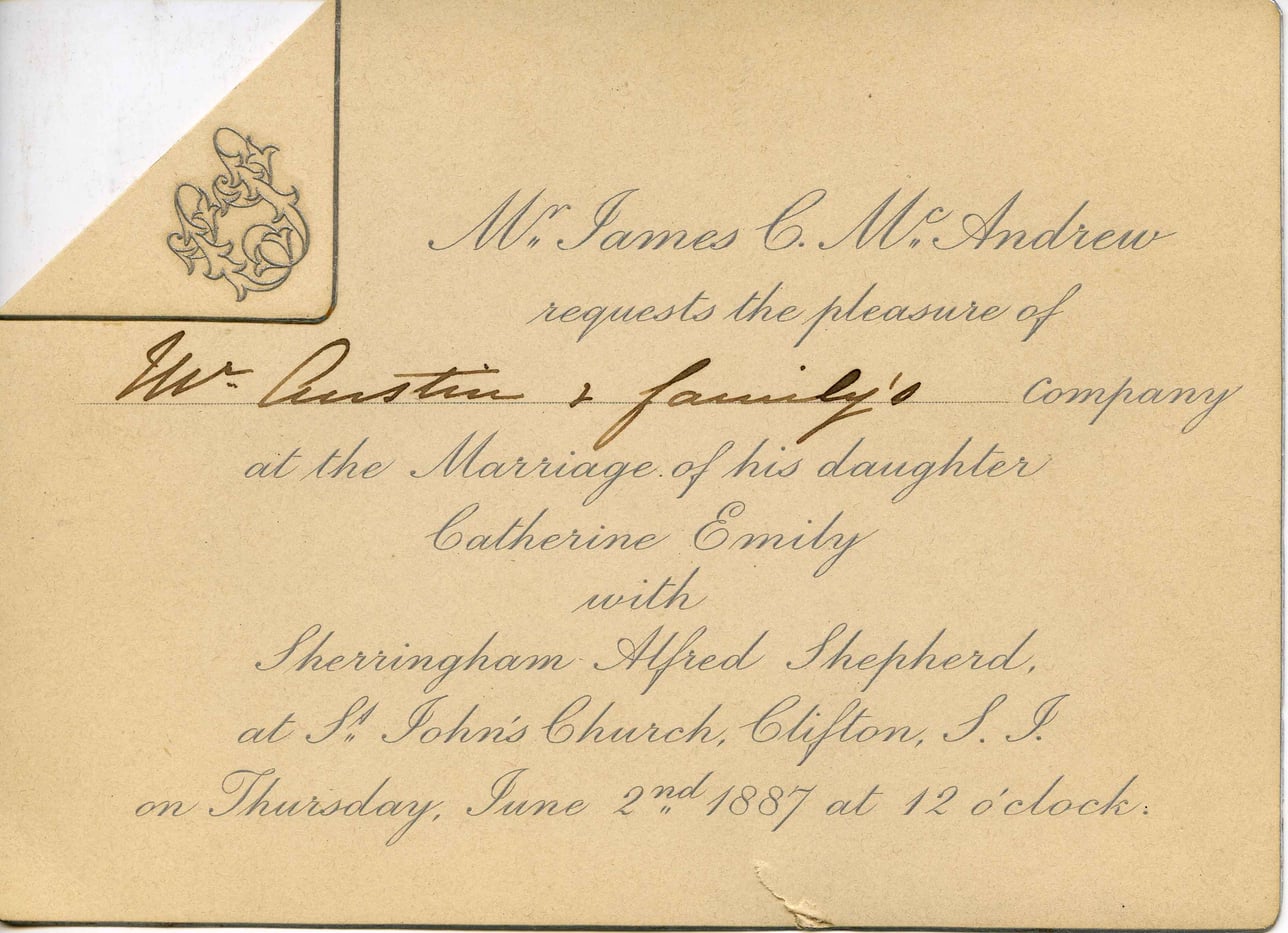 Mr. James C. Mc. Andrew
requests the pleasure of
Mr. Austin & family's company
at the Marriage of his daughter
Catherine Emily
with
Sherringham Alfred Shepherd,
at St. John's Church, Clifton, S. I.
on Thursday, June 2nd 1887 at 12 o'clock.